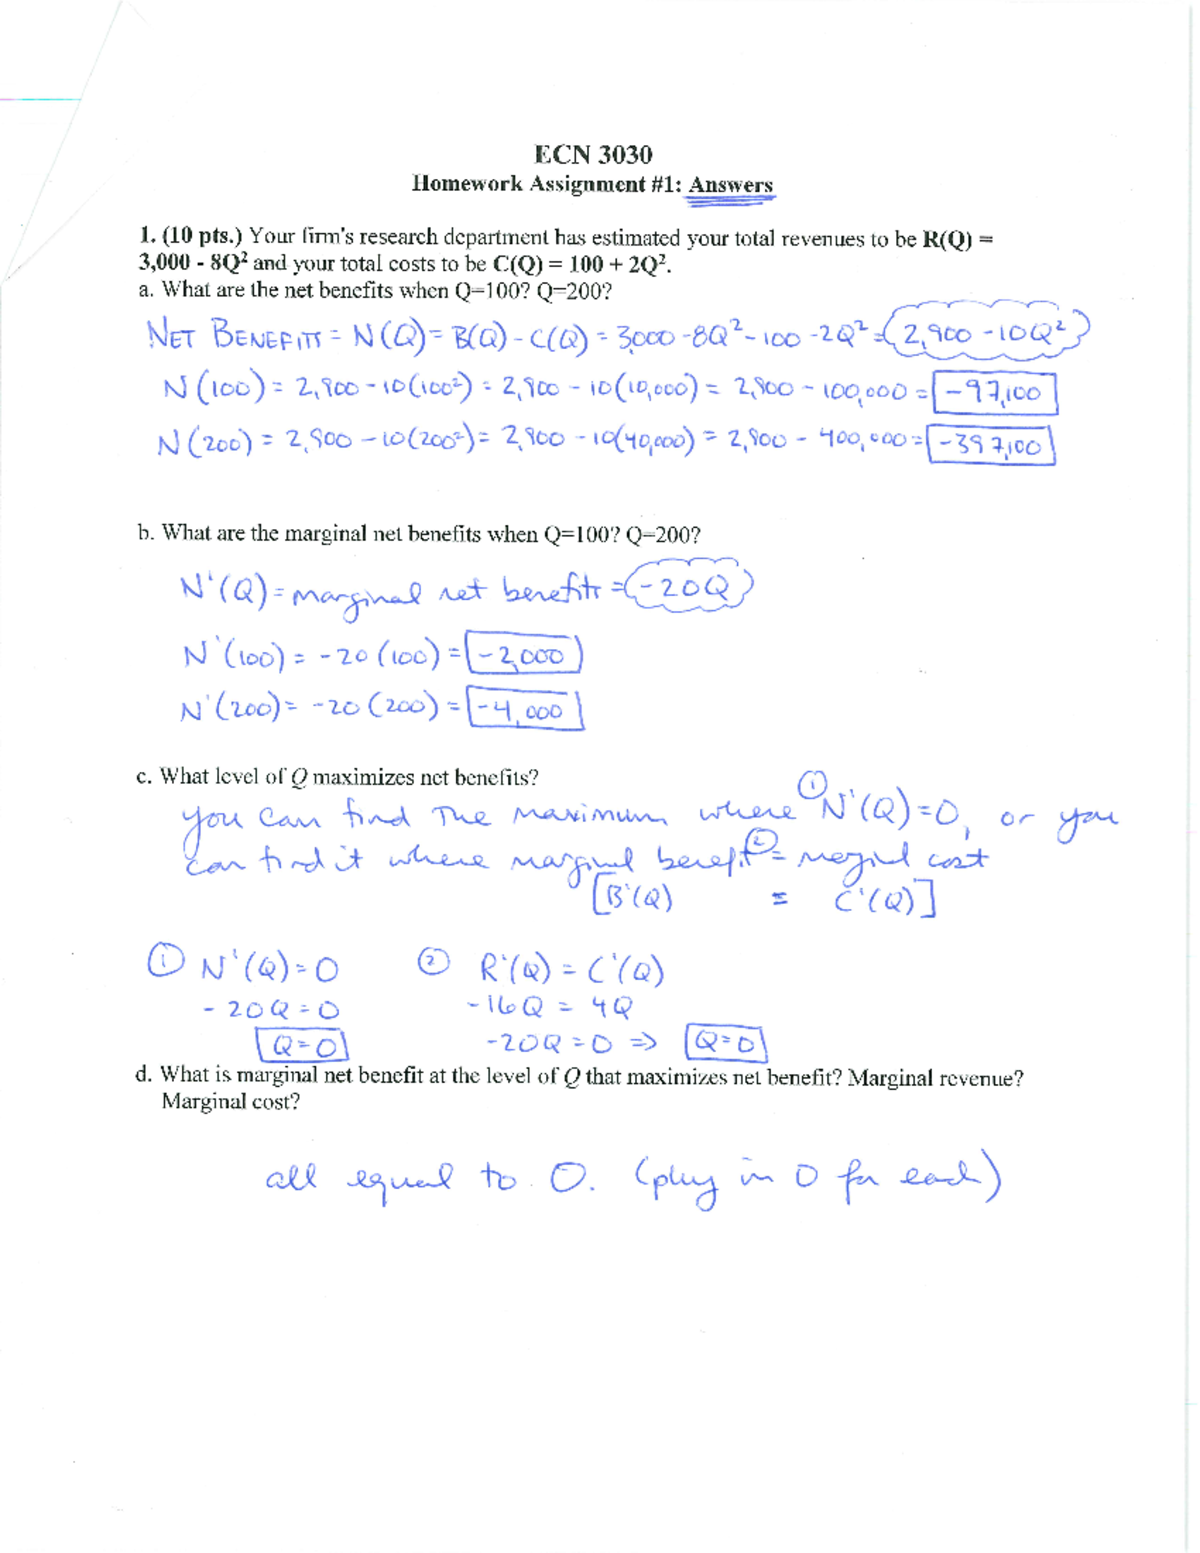 ECN 3030
Homework Assignment #1: Answers
1. (10 pts.) Your firm's research department has estimated your total revenues to be R(Q) =
3,000 - 8Q² and your total costs to be C(Q) = 100 + 2Q².
a. What are the net benefits when Q=100? Q=200?
NET BENEFITS = N(Q) = B(Q) - C(Q) = 3,000 - 8Q² - 100 - 2Q² = 2,900 - 10Q²
N(100) = 2,900 - 10(100²) = 2,900 - 10(10,000) = 2,900 - 100,000 = -97,100
N(200) = 2,900 - 10(200²) = 2,900 - 10(40,000) = 2,900 - 400,000 = -397,100
b. What are the marginal net benefits when Q=100? Q=200?
N'(Q) = marginal net benefits = -20Q
N'(100) = -20(100) = -2,000
N'(200) = -20(200) = -4,000
c. What level of Q maximizes net benefits?
you can find the maximum where ① N'(Q)=0, or you
can find it where marginal benefit ② = marginal cost
[B'(Q) = C'(Q)]
① N'(Q)=0 ② R'(Q) = C'(Q)
-20Q=0 -16Q = 4Q
Q=0 -20Q=0 => Q=0
d. What is marginal net benefit at the level of Q that maximizes net benefit? Marginal revenue?
Marginal cost?
all equal to 0. (plug in 0 for each)